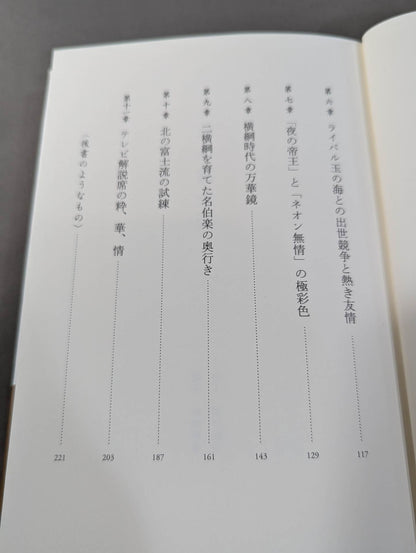 第六章 ライバル玉の海との出世競争と熱き友情 117
第七章 「夜の帝王」と「ネオン無情」の極彩色 129
第八章 横綱時代の万華鏡 143
第九章 二横綱を育てた名伯楽の奥行き 161
第十章 北の富士流の試練 187
第十一章 テレビ解説席の粋、華、情 203
〈後書のようなもの〉 221